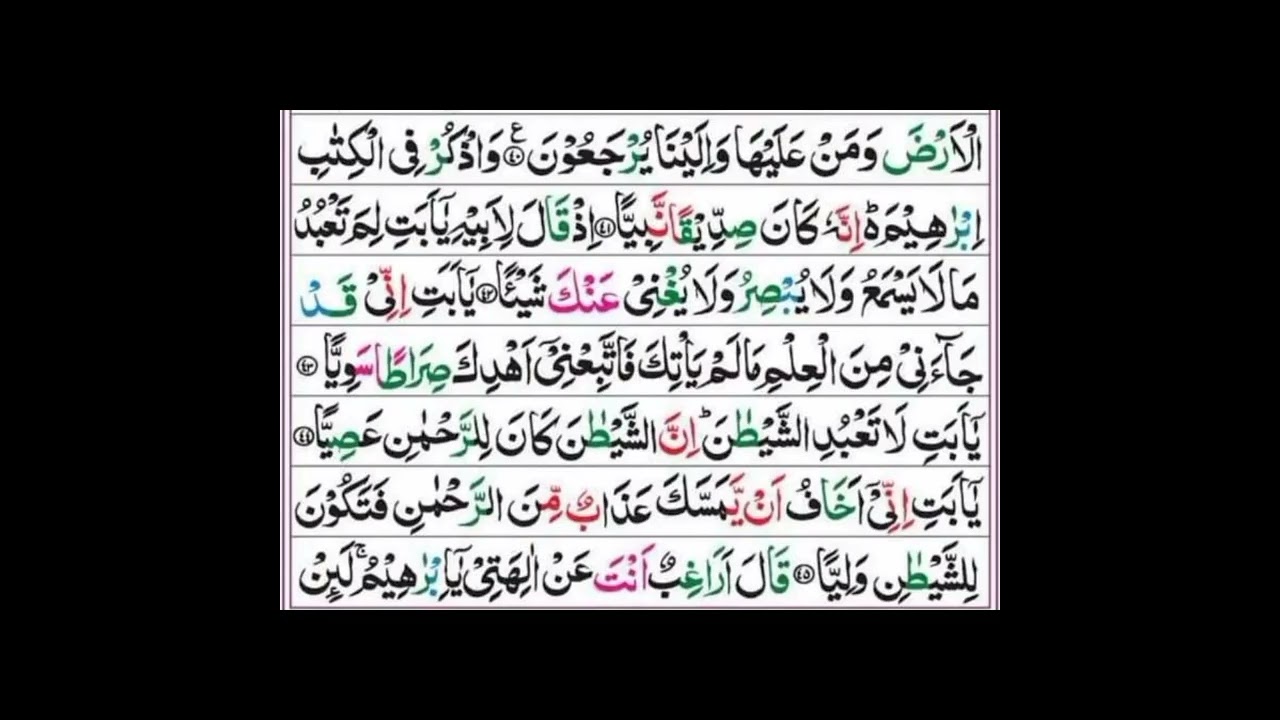 الْاَرْضَ وَمَنْ عَلَيْهَا وَاِلَيْنَا يُرْجَعُوْنَ ﴿٤٠﴾ ع وَاذْكُرْ فِى الْكِتٰبِ
اِبْرٰهِيْمَ ؕ اِنَّهٗ كَانَ صِدِّيْقًا نَّبِيًّا ﴿٤١﴾ اِذْ قَالَ لِاَبِيْهِ يٰۤاَبَتِ لِمَ تَعْبُدُ
مَا لَا يَسْمَعُ وَلَا يُبْصِرُ وَلَا يُغْنِىْ عَنْكَ شَيْئًا ﴿٤٢﴾ يٰۤاَبَتِ اِنِّىْ قَدْ
جَآءَنِىْ مِنَ الْعِلْمِ مَا لَمْ يَاْتِكَ فَاتَّبِعْنِىْۤ اَهْدِكَ صِرَاطًا سَوِيًّا ﴿٤٣﴾
يٰۤاَبَتِ لَا تَعْبُدِ الشَّيْطٰنَ ؕ اِنَّ الشَّيْطٰنَ كَانَ لِلرَّحْمٰنِ عَصِيًّا ﴿٤٤﴾
يٰۤاَبَتِ اِنِّىْۤ اَخَافُ اَنْ يَّمَسَّكَ عَذَابٌ مِّنَ الرَّحْمٰنِ فَتَكُوْنَ
لِلشَّيْطٰنِ وَلِيًّا ﴿٤٥﴾ قَالَ اَرَاغِبٌ اَنْتَ عَنْ اٰلِهَتِىْ يٰۤاِبْرٰهِيْمُ ۚ لَئِنْ